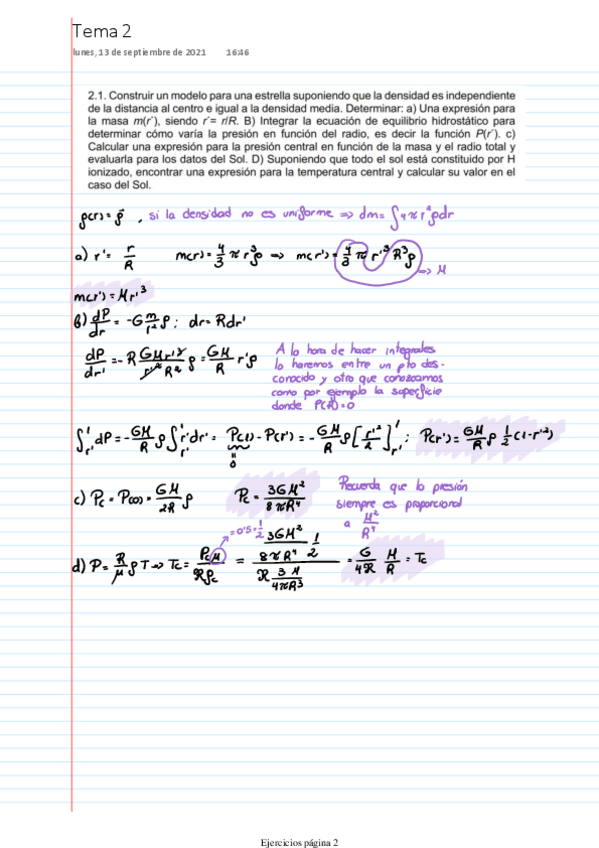 Tema 2
lunes, 13 de septiembre de 2021 16:46
2.1. Construir un modelo para una estrella suponiendo que la densidad es independiente
de la distancia al centro e igual a la densidad media. Determinar: a) Una expresión para
la masa m(r´), siendo r´= r/R. B) Integrar la ecuación de equilibrio hidrostático para
determinar cómo varía la presión en función del radio, es decir la función P(r´). c)
Calcular una expresión para la presión central en función de la masa y el radio total y
evaluarla para los datos del Sol. D) Suponiendo que todo el sol está constituido por H
ionizado, encontrar una expresión para la temperatura central y calcular su valor en el
caso del Sol.
ρ(r) = ρ̄ , si la densidad no es uniforme => dm = ∫4πr²ρdr
a) r' = r/R m(r) = 4/3 π r³ρ => m(r') = 4/3 π r'³ R³ρ => M
m(r') = Mr'³
b) dP/dr = -G m/r² ρ ; dr = Rdr'
dP/dr' = -R GMr'³/r'²R² ρ = GM/R r'ρ
A la hora de hacer integrales
lo haremos entre un pto des-
conocido y otro que conozcamos
como por ejemplo la superficie
donde P(R)=0
∫r'¹ dP = -GM/R ρ ∫r'¹ r'dr' = P(1) - P(r') = -GM/R ρ [r'²/2]r'¹ ; P(r') = GM/R ρ 1/2 (1-r'²)
0
c) Pc = P(0) = GM/2R ρ Pc = 3GM²/8πR⁴
Recuerda que la presión
siempre es proporcional
a M²/R⁴
d) P = R/μ ρ T => Tc = Pc μ/Rρc = (3GM²/8πR⁴ 1/2)/(R 3M/4πR³) = G/4R M/R = Tc
=0'5=1/2
Ejercicios página 2